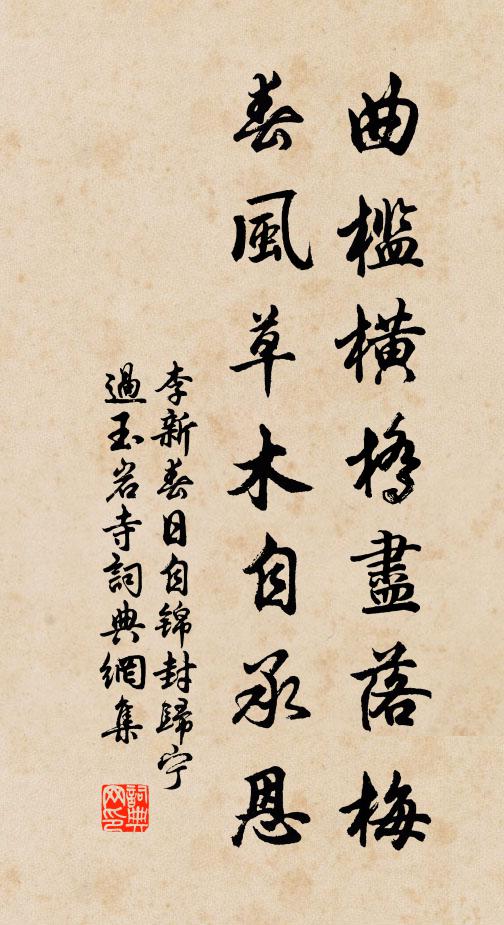 曲檻橫橋盡落梅
春風草木自承恩
李新春日自錦封歸宁
過玉岩寺詞典網集
詞典网印